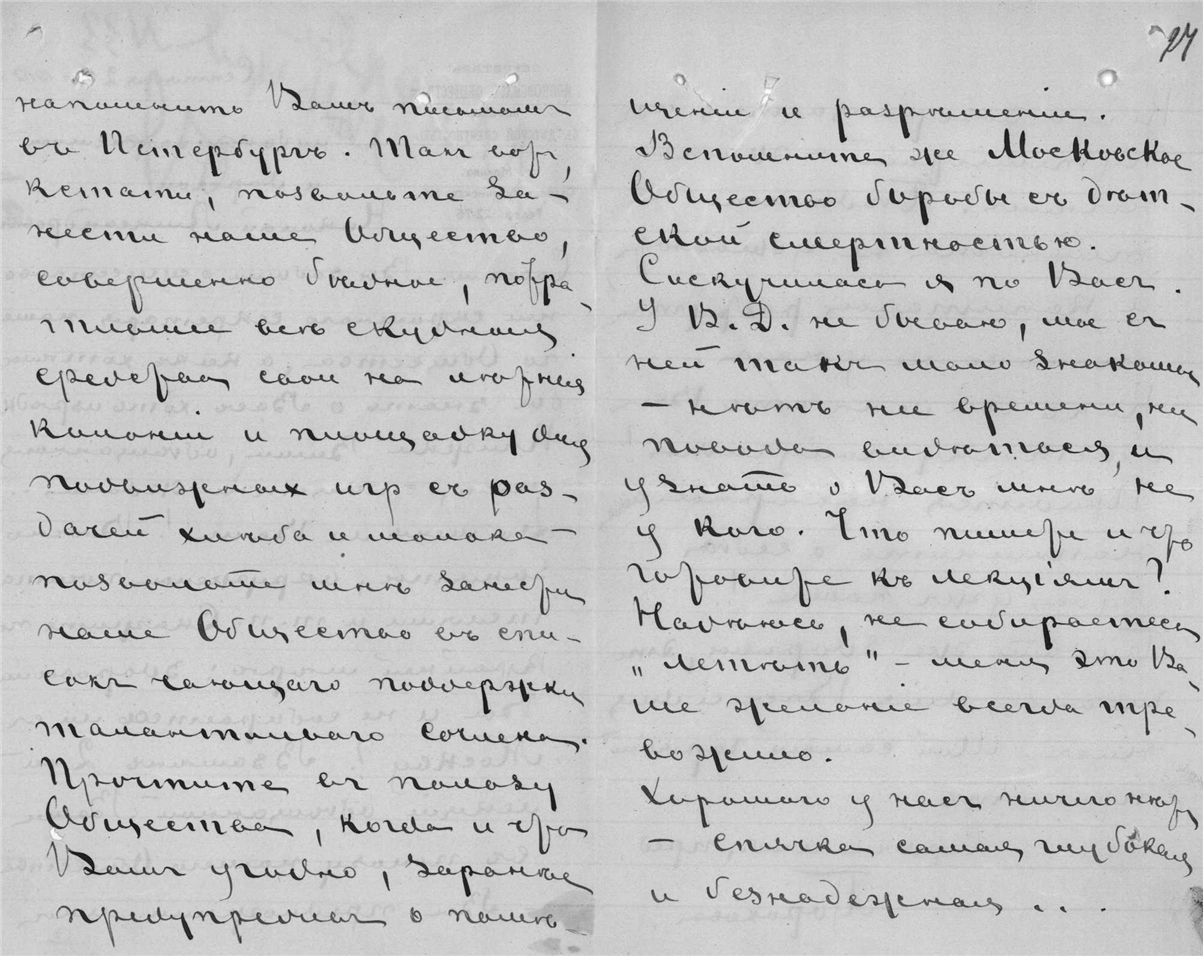 27
напомнить Вамъ письмомъ
въ Петербургъ. Такъ вотъ,
кстати, позвольте за-
нести наше Общество,
совершенно бѣдное, потра-
тившее всѣ скудныя
средства свои на лѣтнія
колоніи и площадку для
подвижныхъ игръ съ раз-
дачей хлѣба и молока –
позвольте мнѣ занести
наше Общество въ спи-
сокъ чающаго поддержки
талантливаго сочлена.
Прочтите въ пользу
Общества, когда и что
Вамъ угодно, заранѣе
предупредивъ о помѣ-
щеніи и разрѣшеніи.
Вспомните же Московское
Общество борьбы съ дѣт-
ской смертностью.
Соскучилась я по Васъ.
У В. Д. не бываю, мы съ
ней такъ мало знакомы
– нѣтъ ни времени, ни
повода видѣться, и
узнать о Васъ мнѣ не
у кого. Что пишете и что
готовите къ лекціямъ?
Надѣюсь, не собираетесь
„летѣть" – меня это Ва-
ше желаніе всегда тре-
вожило.
Хорошаго у насъ ничего нѣтъ
– спячка самая глубокая
и безнадежная ...